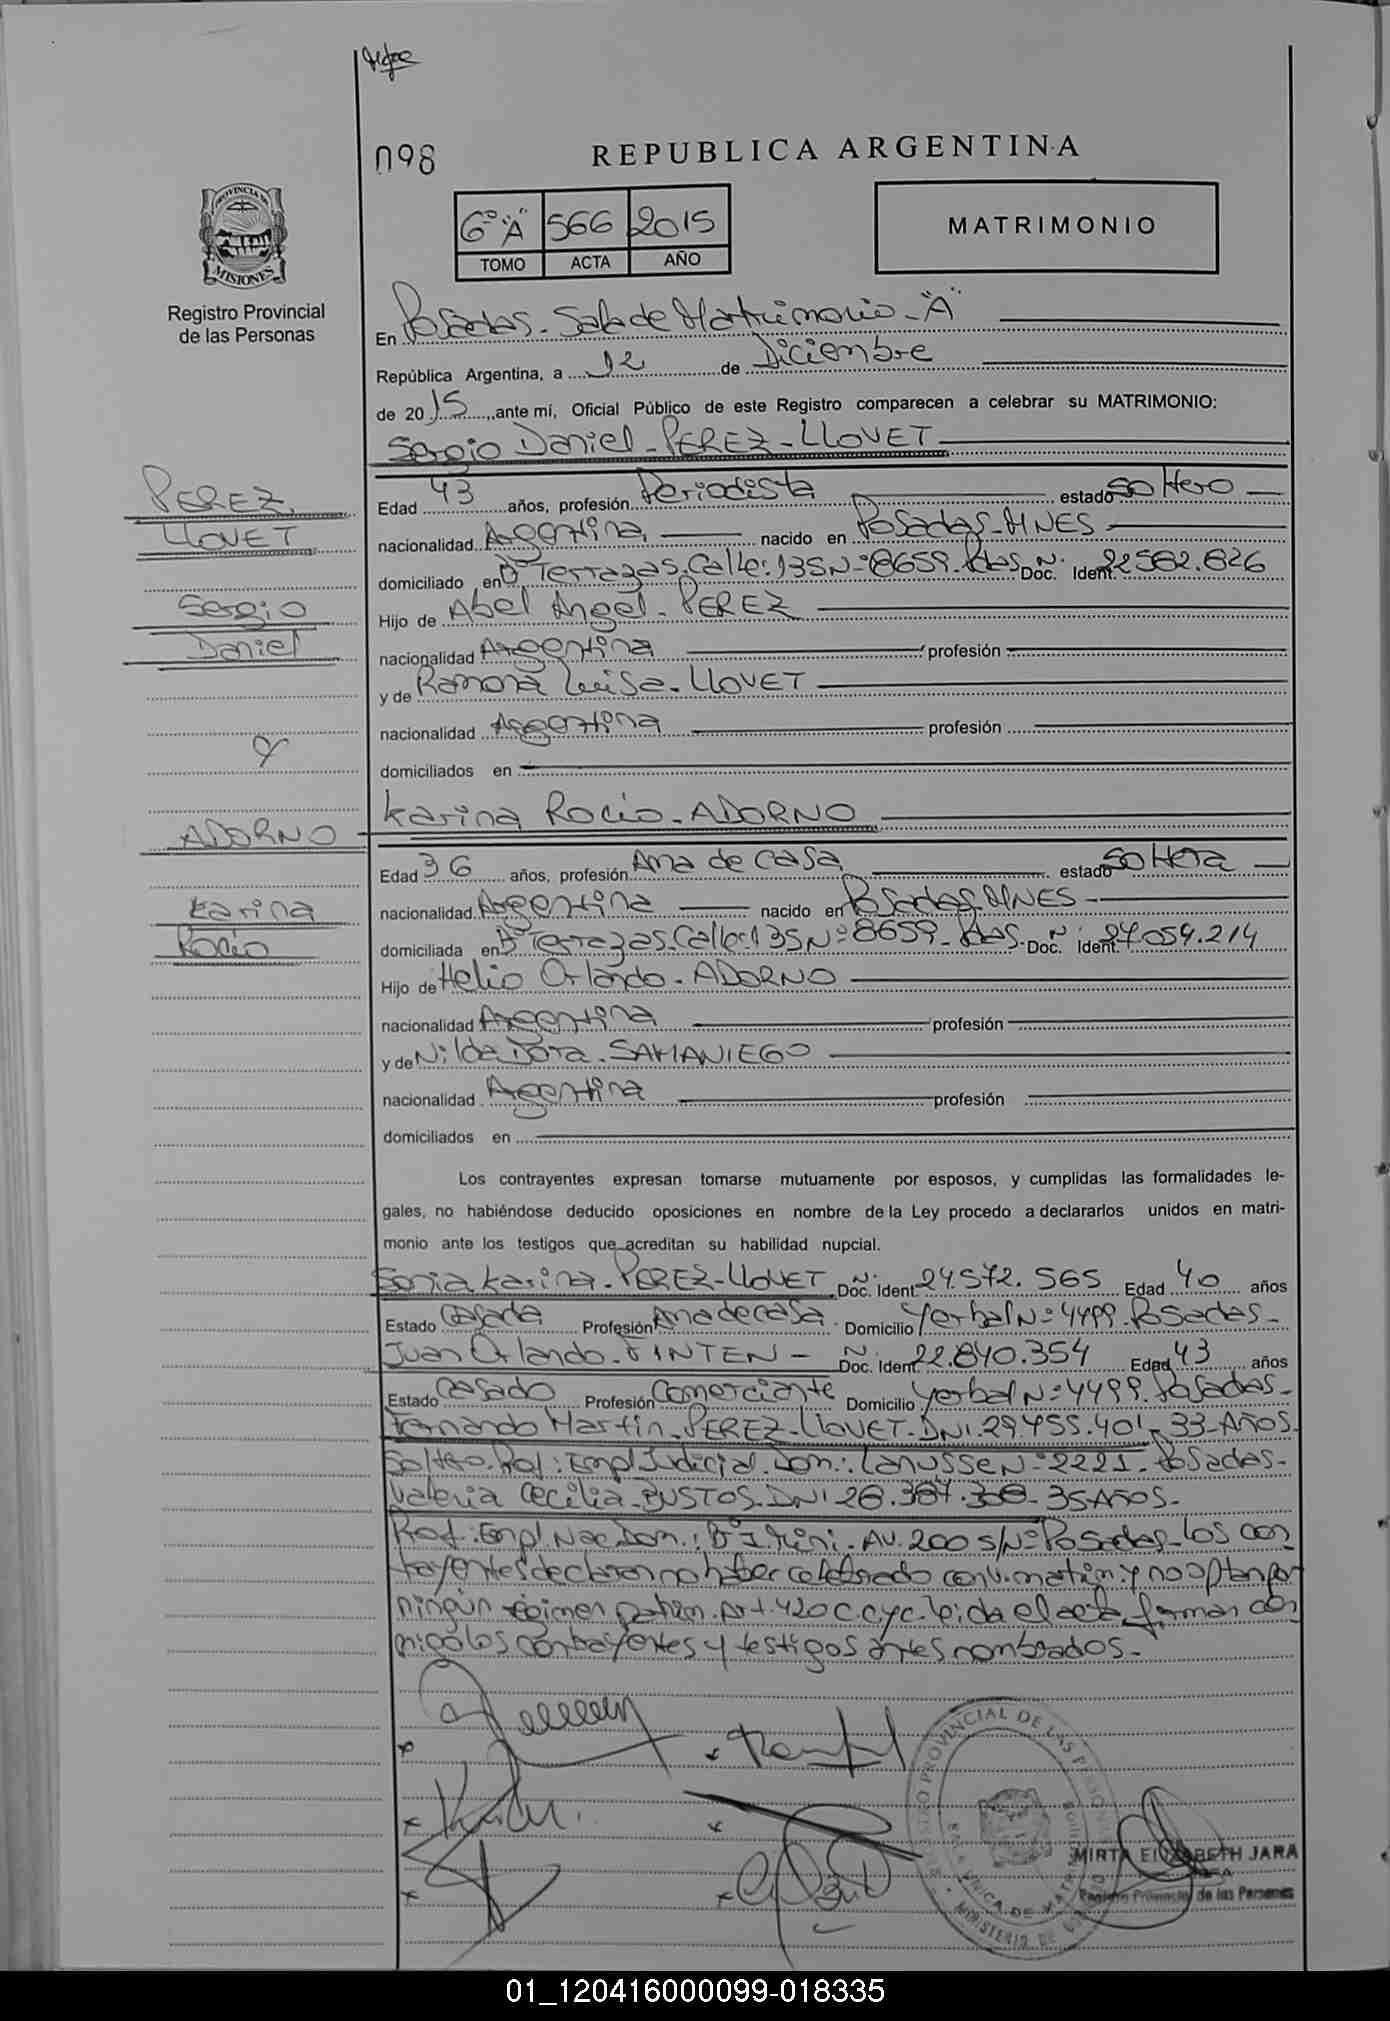 098
REPUBLICA ARGENTINA
6º "A" 566 2015
TOMO ACTA AÑO
MATRIMONIO
PROVINCIA DE
MISIONES
Registro Provincial
de las Personas
En Posadas-Sala de Matrimonio-"A"
República Argentina, a 12 de Diciembre
de 2015, ante mí, Oficial Público de este Registro comparecen a celebrar su MATRIMONIO:
Sergio Daniel-PEREZ-LLOVET
PEREZ
LLOVET
Sergio
Daniel
Edad 43 años, profesión Periodista estado Soltero
nacionalidad Argentina nacido en Posadas-MNES
domiciliado en Bº Terrazas.Calle:135Nº8659-Pdas. Doc. Nº Ident. 22582.826
Hijo de Abel Angel-PEREZ
nacionalidad Argentina profesión
y de Ramona Luisa-LLOVET
nacionalidad Argentina profesión
y
domiciliados en
Karina Rocio-ADORNO
ADORNO
Karina
Rocio
Edad 36 años, profesión Ama de casa estado Soltera
nacionalidad Argentina nacido en Posadas.MNES
domiciliada en Bº Terrazas.Calle:135Nº8659-Pdas. Doc. Nº Ident. 27059.214
Hijo de Helio Orlando-ADORNO
nacionalidad Argentina profesión
y de Nilda Dora-SAMANIEGO
nacionalidad Argentina profesión
domiciliados en
Los contrayentes expresan tomarse mutuamente por esposos, y cumplidas las formalidades le-
gales, no habiéndose deducido oposiciones en nombre de la Ley procedo a declararlos unidos en matri-
monio ante los testigos que acreditan su habilidad nupcial.
Sonia Karina-PEREZ-LLOVET Doc. Nº Ident. 24.572.565 Edad 40 años
Estado Casada Profesión Ama de casa Domicilio Yerbal Nº 4499.Posadas-
Juan Orlando- Doc. Nº Ident. 22.840.354 Edad 43 años
Estado Casado Profesión Comerciante Domicilio Yerbal Nº 4499.Posadas-
Fernando Martin-PEREZ-LLOVET-DNI.29.455.401-33-AÑOS
Soltero.Prof.:Empl Judicial.Dom.:Lanusse Nº 2221.Posadas-
Valeria Cecilia-BUSTOS-DNI 28. -35-AÑOS-
Prof.:Empl Nac.Dom.:Bº AV.200 S/Nº Posadas-Los con
trayentes declaran no haber celebrado conv.matrim.y no optan por
ningún régimen patrim.Art.420 C.C.y C.Leida el acta firman con
migo los contrayentes y testigos antes nombrados.-
REGISTRO PROVINCIAL DE LAS PERSONAS
MINISTERIO DE GOBIERNO
MIRTA ELIZABETH JARA
Registro Provincial de las Personas
01_120416000099-018335